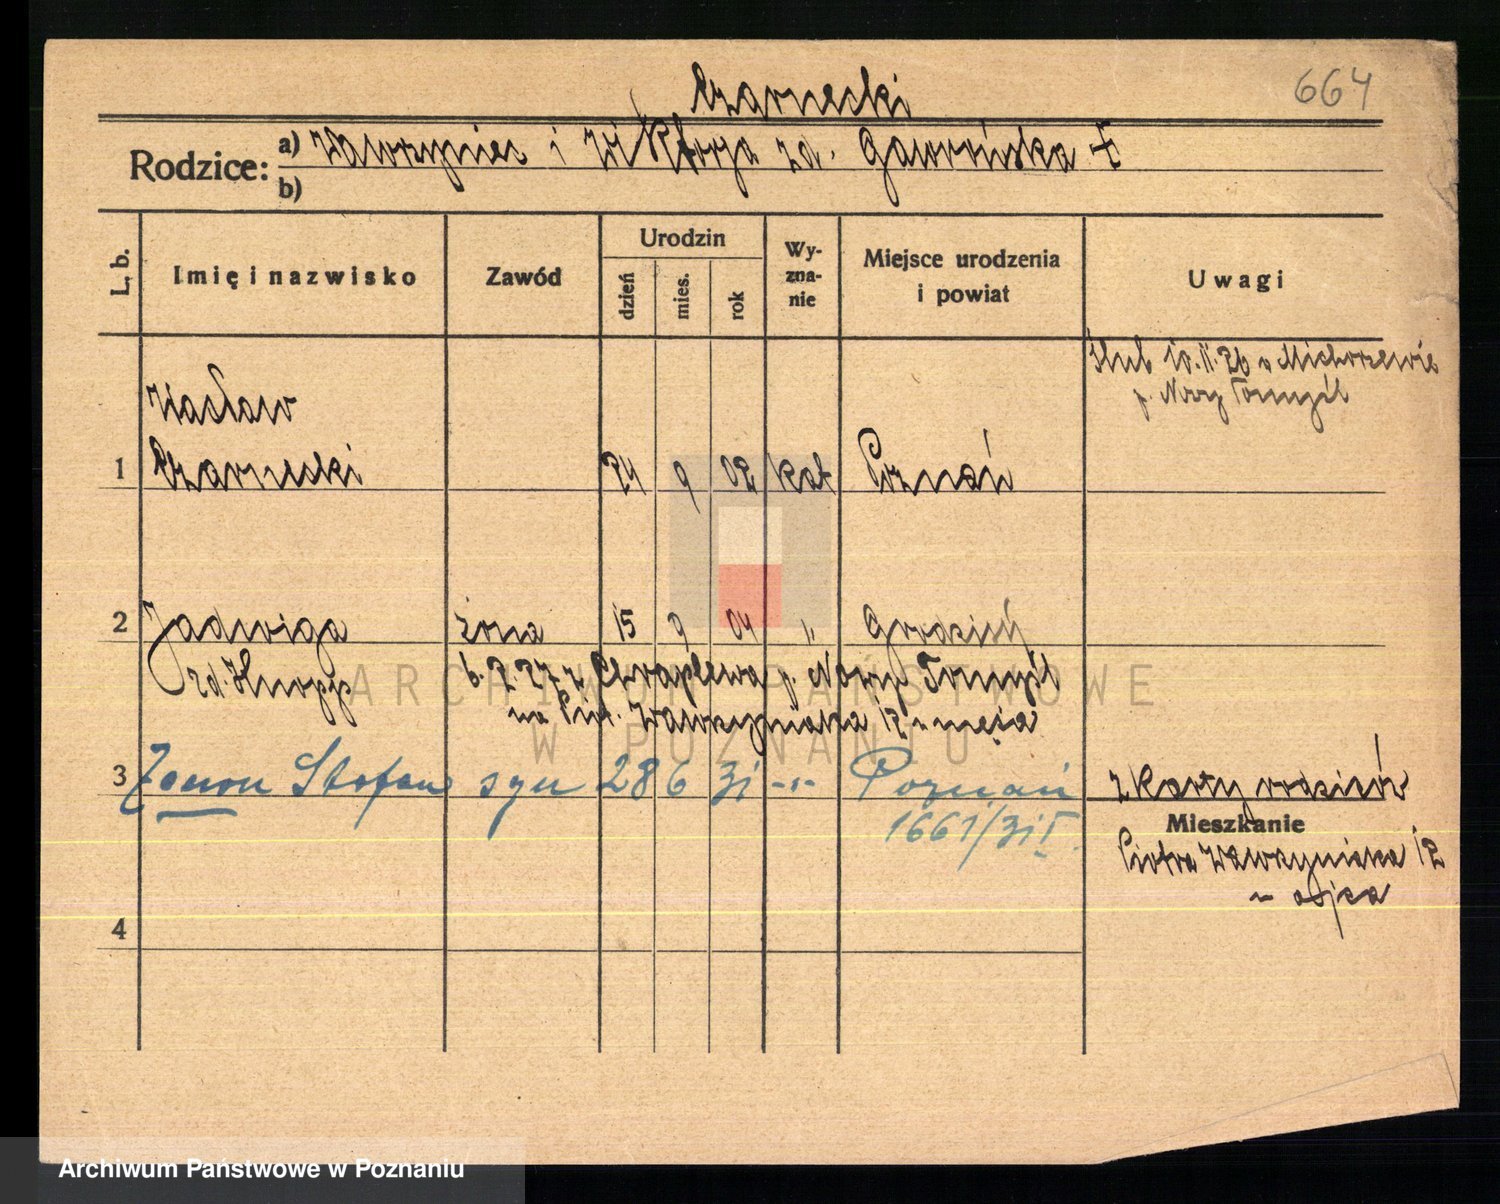 Czarnecki
664
Rodzice: a) Wawrzyniec i Wiktorja zd. Gawrońska †
b)
L. b.
Imię i nazwisko
Zawód
Urodzin
dzień
mies.
rok
Wy-
zna-
nie
Miejsce urodzenia
i powiat
Uwagi
Ślub 10.II.26 w Michorzewie
p. Nowy Tomyśl
Wacław
1 Czarnecki 24 9 02 kat Poznań
2 Jadwiga żona 15 9 04 " Grodzisk
zd. Knopp 6.2.27 z Chraplewa p. Nowy Tomyśl
na Piot. Wawrzyniaka 12 u męża
3 Zenon Stefan syn 28 6 31 -"- Poznań
1661/31 I.
z karty rodziców
Mieszkanie
Piotra Wawrzyniaka 12
u ojca
4
ARCHIWUM PAŃSTWOWE
W POZNANIU
Archiwum Państwowe w Poznaniu